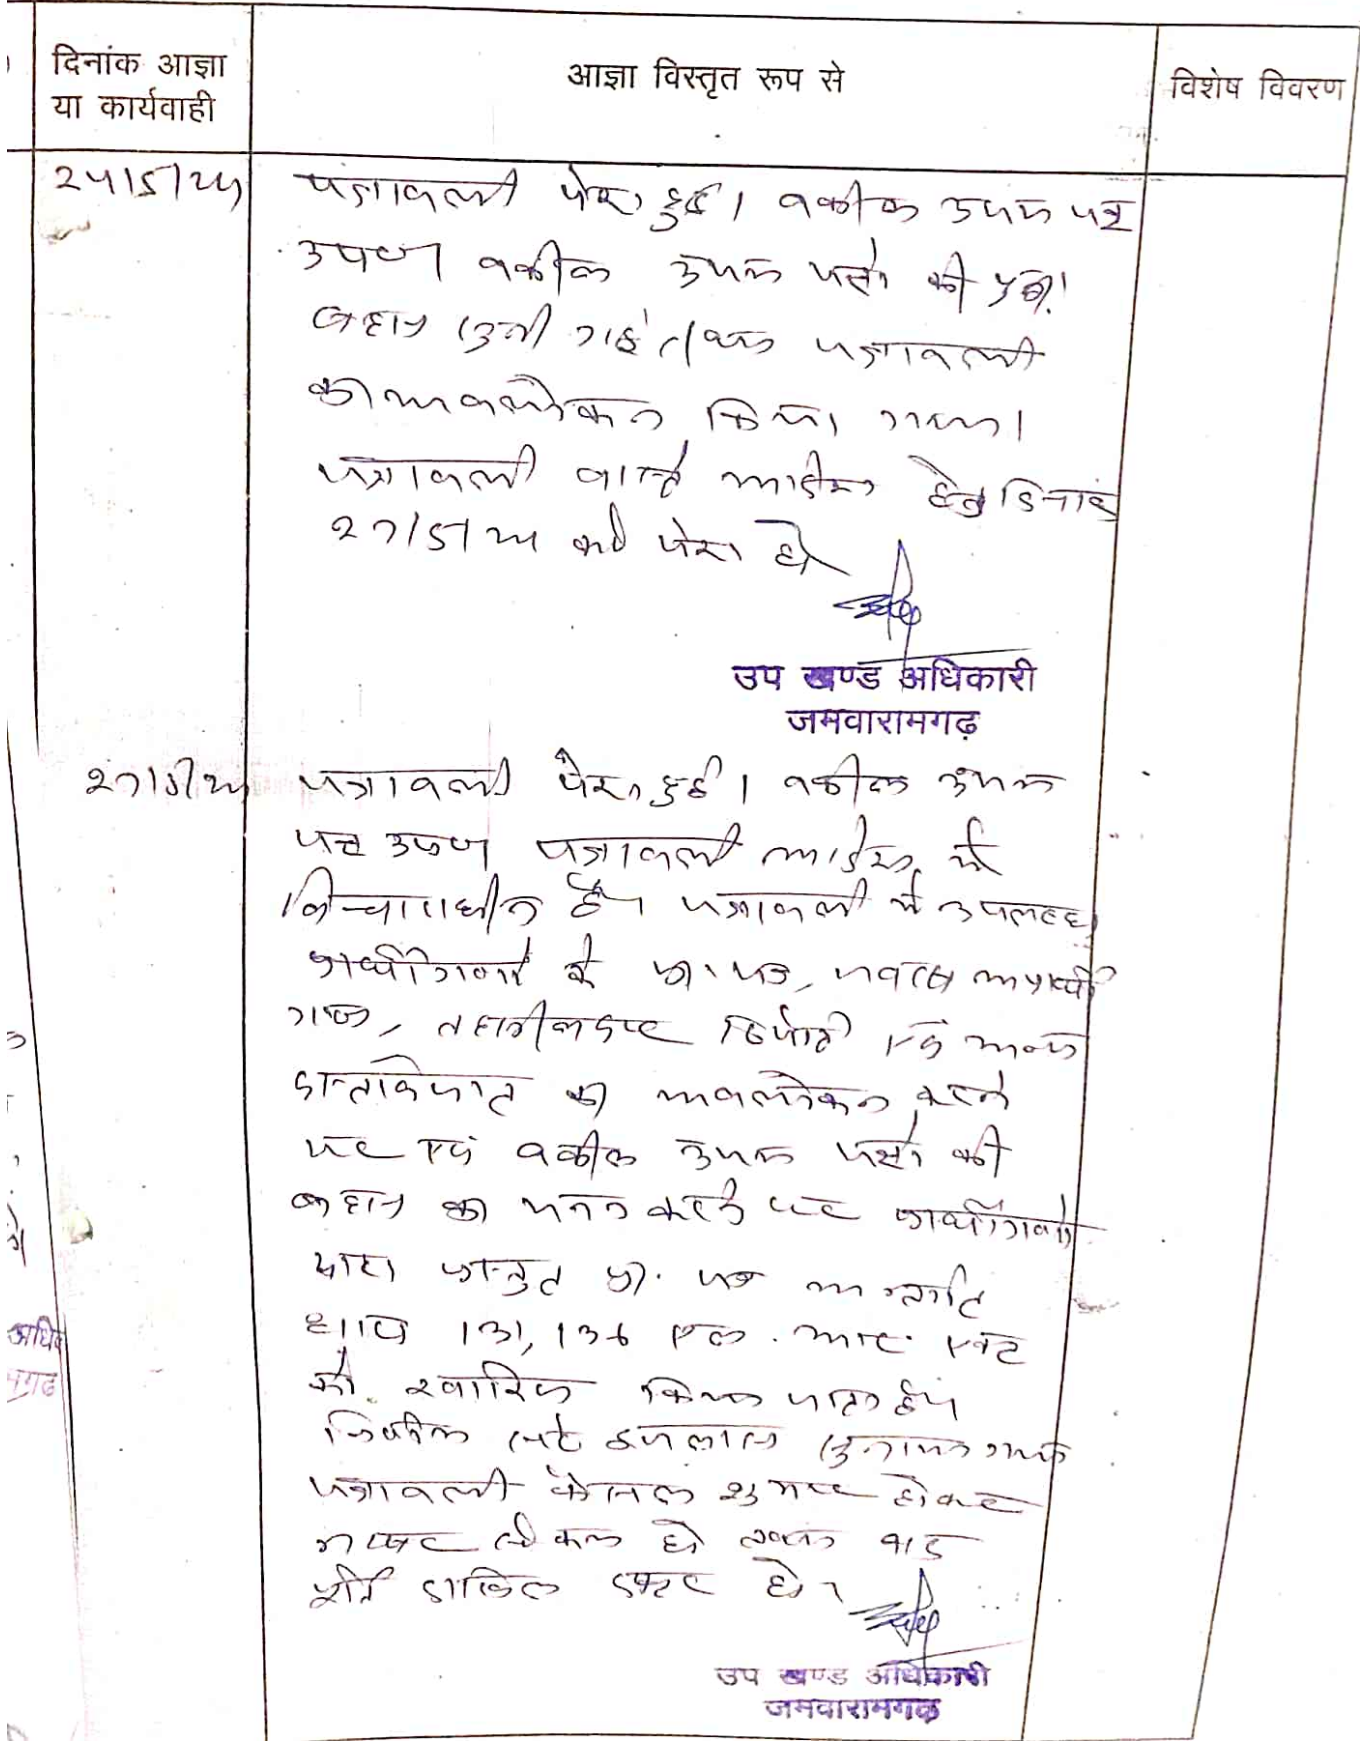 दिनांक आज्ञा
या कार्यवाही
आज्ञा विस्तृत रूप से
विशेष विवरण
पत्रावली पेश हुई। वकील उभय पक्ष
उपo वकील उभय पक्षों की
बहस सुनी गई तथा पत्रावली
का अवलोकन किया गया।
पत्रावली वास्ते आदेश हेतु दिनांक
को पेश हो
उप खण्ड अधिकारी
जमवारामगढ़
पत्रावली पेश हुई। वकील उभय
पक्ष उपo पत्रावली आदेश में
विचाराधीन है। पत्रावली में उपलब्ध
प्रार्थीगणों के प्रा. पत्र, अप्रार्थी
गण, तहसीलदार रिपोर्ट एवं अन्य
दस्तावेजात का अवलोकन करने
पर एवं वकील उभय पक्षों की
बहस का मनन करने पर प्रार्थीगणों
द्वारा प्रस्तुत प्रा. पत्र अन्तर्गत
धारा 131, 136 एल. आर. एक्ट
को खारिज किया जाता है।
निर्णय सरे इजलास सुनाया गया
पत्रावली फैसल शुमार होकर
नम्बर से कम हो तथा बाद
पूर्ति दाखिल दफ्तर हो।
उप खण्ड अधिकारी
जमवारामगढ़